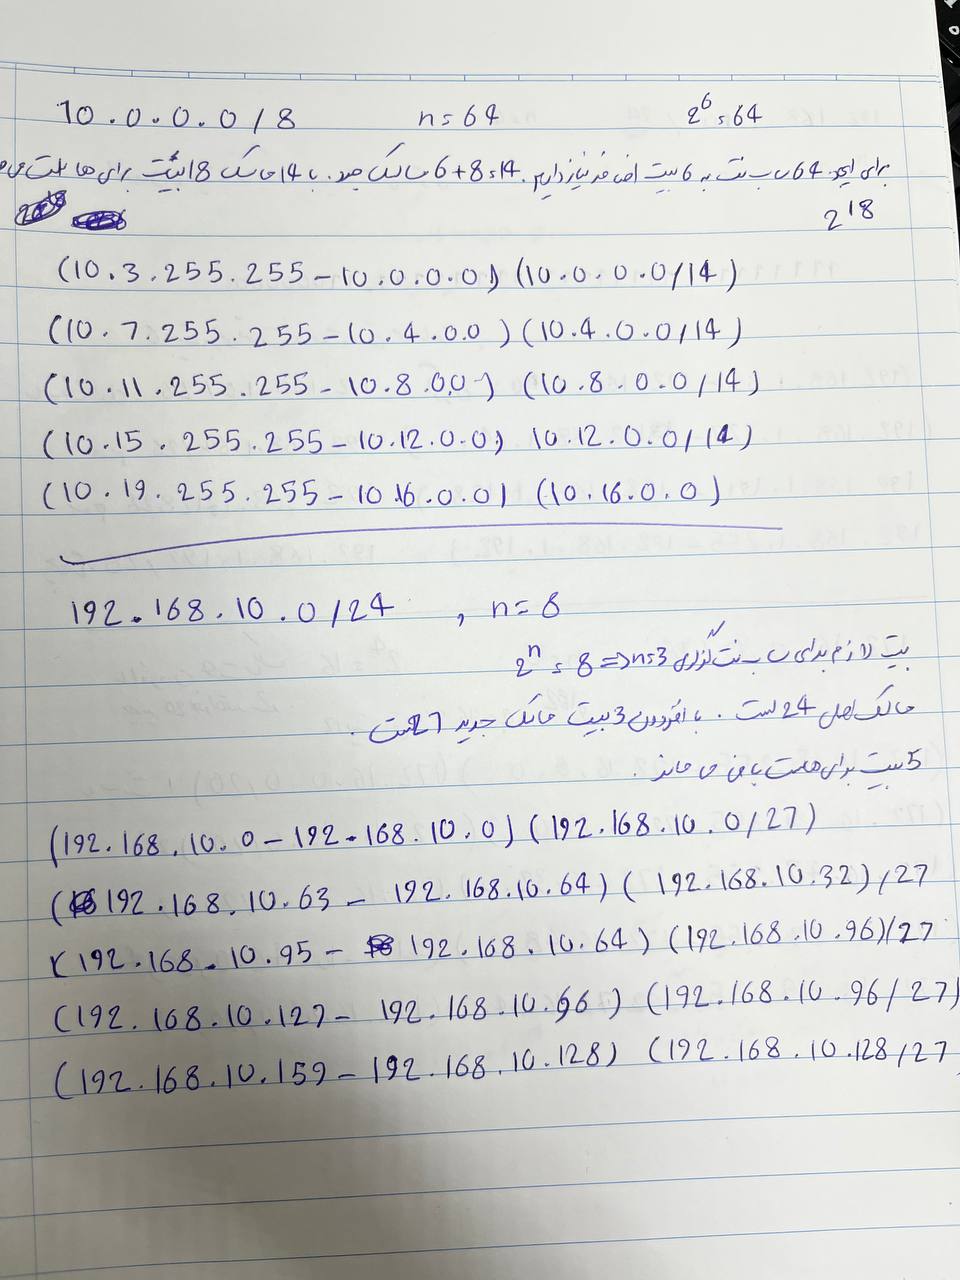 10.0.0.0/8 n=64 2^6=64
برای ایجاد 64 ساب نت به 6 بیت اضافه نیاز داریم. 14=8+6 ماسک جدید. با 14 ماسک 18 بیت برای هاست
2^18
(10.3.255.255-10.0.0.0) (10.0.0.0/14)
(10.7.255.255-10.4.0.0) (10.4.0.0/14)
(10.11.255.255-10.8.0.0) (10.8.0.0/14)
(10.15.255.255-10.12.0.0) 10.12.0.0/14)
(10.19.255.255-10.16.0.0) (10.16.0.0)
192.168.10.0/24 , n=8
بیت لازم برای ساب نت گذاری 2^n=8=>n=3
ماسک اصلی 24 است. با افزودن 3 بیت ماسک جدید 27 است.
5 بیت برای هاست باقی می ماند.
(192.168.10.0-192.168.10.0) (192.168.10.0/27)
(192.168.10.63-192.168.10.64) (192.168.10.32)/27
(192.168.10.95-192.168.10.64) (192.168.10.96)/27
(192.168.10.127-192.168.10.96) (192.168.10.96/27)
(192.168.10.159-192.168.10.128) (192.168.10.128/27